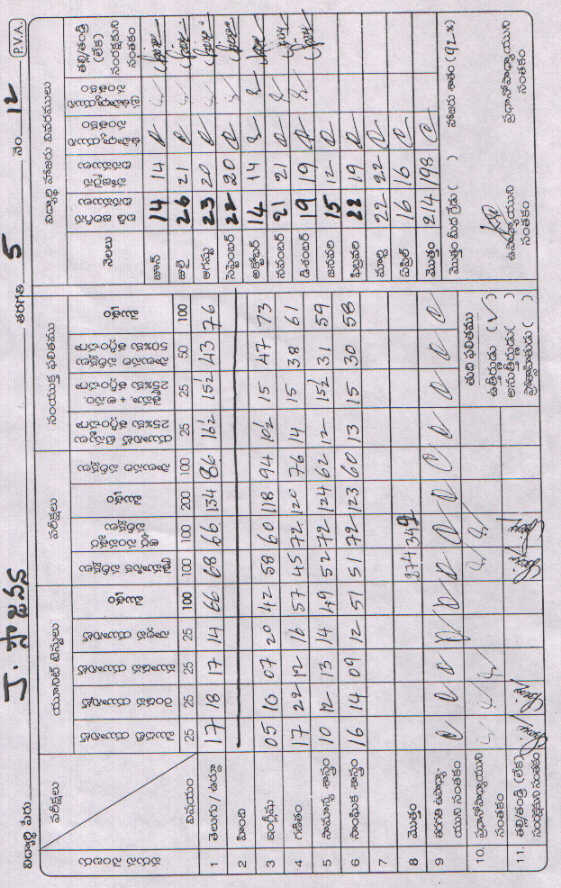 విద్యార్థి పేరు J. తరగతి 5 నెం. 12 P.V.A.
వరుస సంఖ్య పరీక్షలు యూనిట్ టెస్టులు పరీక్షలు సంయుక్త ఫలితము
విషయం మొదటి యూనిట్ రెండవ యూనిట్ మూడవ యూనిట్ నాల్గవ యూనిట్ మొత్తం త్రైమాసిక పరీక్షలు అర్థ సంవత్సర పరీక్షలు మొత్తం సాలుసరి పరీక్షలు యూనిట్ టెస్టులు 25%కు తగ్గించగా త్రైమా. + అ.సం. 25%కు తగ్గించగా సాలుసరి పరీక్షలు 50%కు తగ్గించగా మొత్తం
25 25 25 25 100 100 100 200 100 25 25 50 100
1 తెలుగు / ఉర్దూ 17 18 17 14 66 68 66 134 86 16½ 15½ 43 76
2 హిందీ
3 ఇంగ్లీషు 05 10 07 20 42 58 60 118 94 10½ 15 47 73
4 గణితం 17 22 12 16 57 45 72 120 76 14 15 38 61
5 సామాన్య శాస్త్రం 10 12 13 14 49 52 72 124 62 12 15½ 31 59
6 సాంఘిక శాస్త్రం 16 14 09 12 51 51 72 123 60 13 15 30 58
7
8 మొత్తం 274 342
9 తరగతి ఉపాధ్యా-
యుని సంతకం
10. ప్రధానోపాధ్యాయుని
సంతకం
11. తల్లి/తండ్రి (లేక)
సంరక్షకుని సంతకం
తుది ఫలితము
ఉత్తీర్ణుడు (✓)
అనుత్తీర్ణుడు ( )
ప్రోత్సాహితుడు ( )
విద్యార్థి హాజరు వివరములు
నెలలు బడి జరిగిన దినములు హాజరైన దినములు తల్లి/తండ్రి (లేక) సంరక్షకుని సంతకం
జూన్ 14 14
జులై 26 21
ఆగస్టు 23 20
సెప్టెంబర్ 22 20
అక్టోబర్ 14 14
నవంబర్ 21 21
డిశంబర్ 19 19
జనవరి 15 12
ఫిబ్రవరి 22 19
మార్చి 22 22
ఏప్రిల్ 16 16
మొత్తం 214 198
మొత్తం మీద గ్రేడు ( ) హాజరు శాతం (92.%)
ఉపాధ్యాయుని
సంతకం
ప్రధానోపాధ్యాయుని
సంతకం